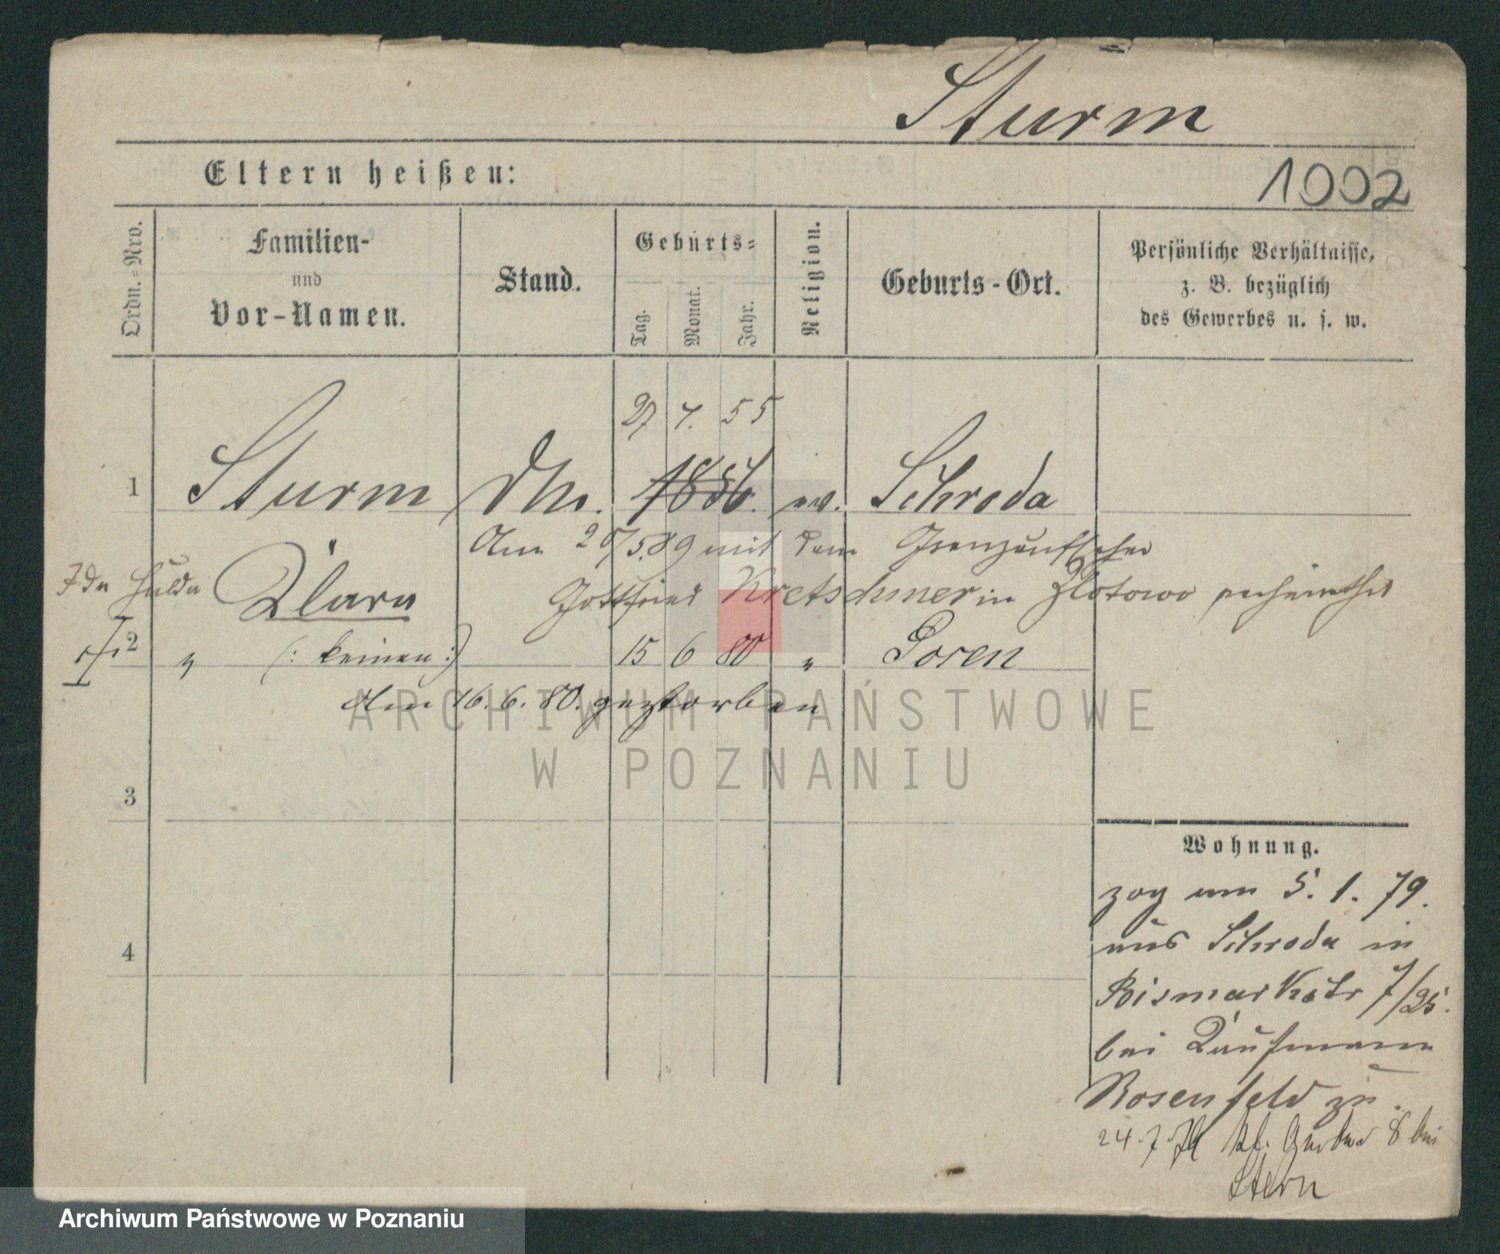 Sturm
Eltern heißen:
1002
Ordn.-Nro.
Familien-
und
Vor-Namen.
Stand.
Geburts-
Tag.
Monat.
Jahr.
Religion.
Geburts-Ort.
Persönliche Verhältnisse,
z. B. bezüglich
des Gewerbes u. s. w.
27 7. 55
1 Sturm 1856. ev. Schroda
Am 20/5.89 mit dem Grenzaufseher
Ida Hulda Clara Gottfried Kretschmer in Zlotowo verheirathet
2 " (: keinen :) 15 6 80 " Posen
Am 16. 6. 80. gestorben
ARCHIWUM PAŃSTWOWE
W POZNANIU
3
4
Wohnung.
zog am 5. 1. 79.
aus Schroda in
Bismarkstr 7/25.
bei Kaufmann
Rosenfeld zu.
24. 7. 79 kl. Gerber 8 bei
Stern
Archiwum Państwowe w Poznaniu